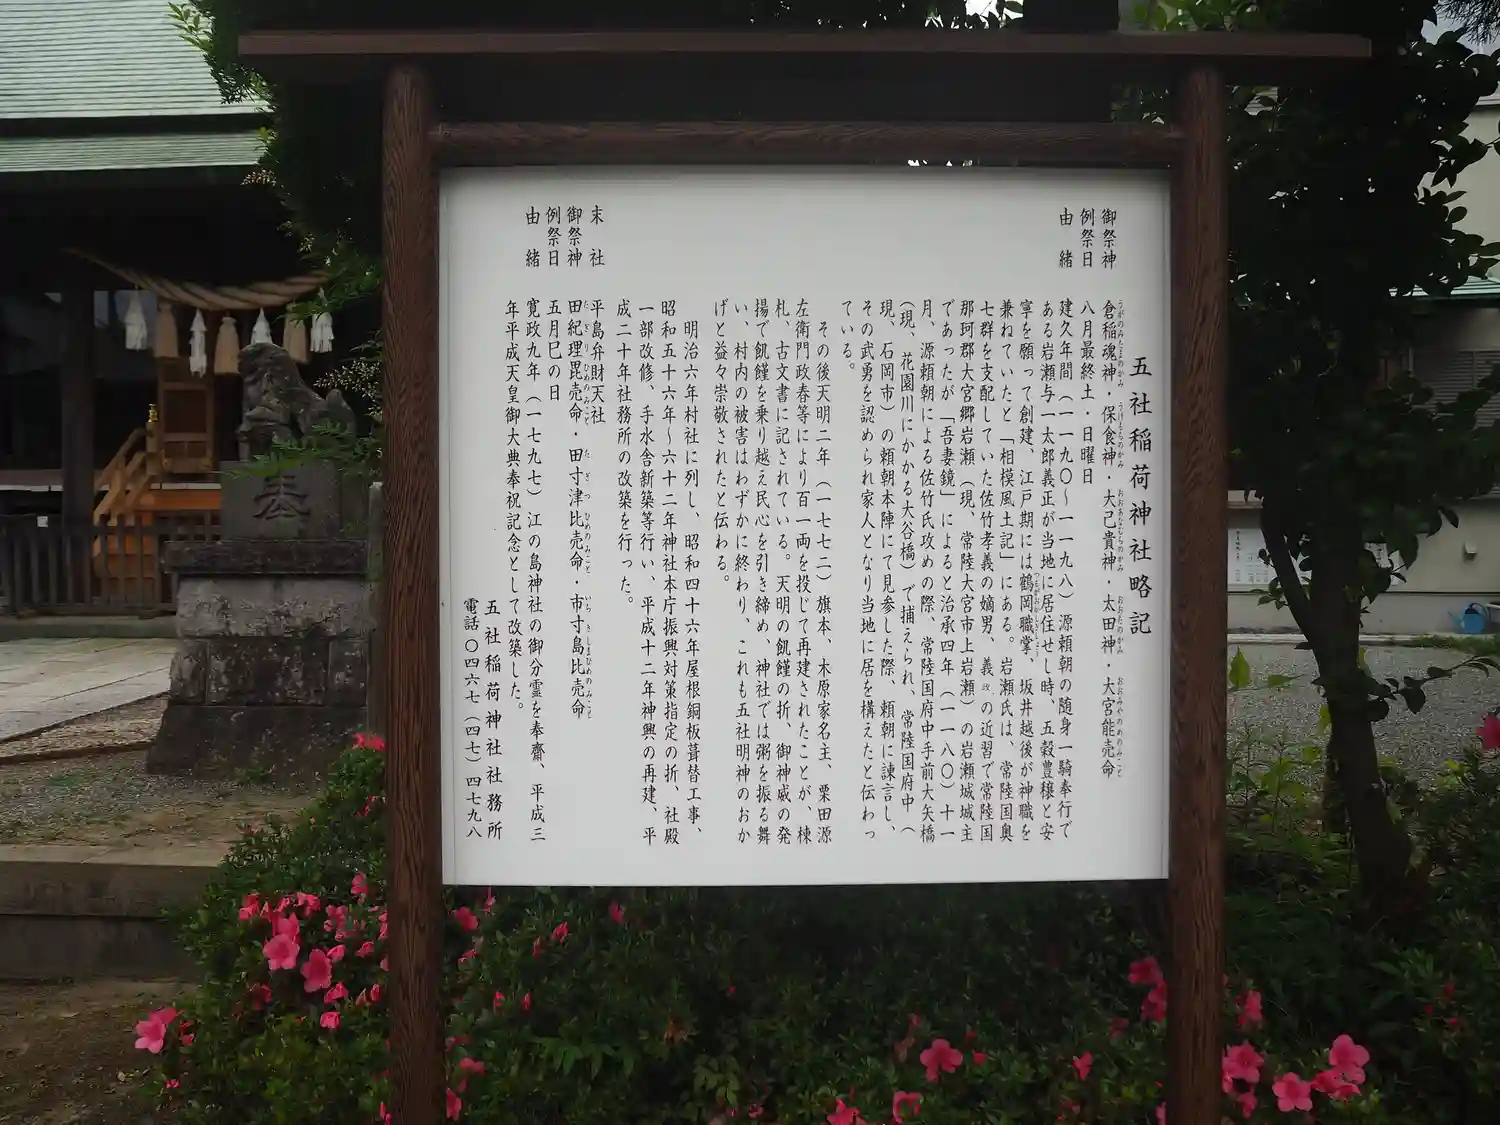 五社稲荷神社略記
御祭神 倉稲魂神・保食神・大己貴神・太田神・大宮能売命
うがのみたまのかみ うけもちのかみ おおあなむちのかみ おおたのかみ おおみやのめのみこと
例祭日 八月最終土・日曜日
由緒 建久年間（一一九〇〜一一九八）源頼朝の随身一騎奉行で
ある岩瀬与一太郎義正が当地に居住せし時、五穀豊穣と安
寧を願って創建、江戸期には鶴岡職掌、坂井越後が神職を
兼ねていたと「相模風土記」にある。岩瀬氏は、常陸国奥
七群を支配していた佐竹孝義の嫡男、義政の近習で常陸国
那珂郡大宮郷岩瀬（現、常陸大宮市上岩瀬）の岩瀬城城主
であったが「吾妻鏡」によると治承四年（一一八〇）十一
月、源頼朝による佐竹氏攻めの際、常陸国府中手前大矢橋
（現、花園川にかかる大谷橋）で捕えられ、常陸国府中（
現、石岡市）の頼朝本陣にて見参した際、頼朝に諫言し、
その武勇を認められ家人となり当地に居を構えたと伝わっ
ている。
その後天明二年（一七七二）旗本、木原家名主、栗田源
左衛門政春等により百一両を投じて再建されたことが、棟
札、古文書に記されている。天明の飢饉の折、御神威の発
揚で飢饉を乗り越え民心を引き締め、神社では粥を振る舞
い、村内の被害はわずかに終わり、これも五社明神のおか
げと益々崇敬されたと伝わる。
明治六年村社に列し、昭和四十六年屋根銅板葺替工事、
昭和五十六年〜六十二年神社本庁振興対策指定の折、社殿
一部改修、手水舎新築等行い、平成十二年神興の再建、平
成二十年社務所の改築を行った。
末社 平島弁財天社
御祭神 田紀理毘売命・田寸津比売命・市寸島比売命
たぎりひめのみこと たぎつひめのみこと いちきしまひめのみこと
例祭日 五月巳の日
由緒 寛政九年（一七九七）江の島神社の御分霊を奉齋、平成三
年平成天皇御大典奉祝記念として改築した。
五社稲荷神社社務所
電話〇四六七（四七）四七九八
奉